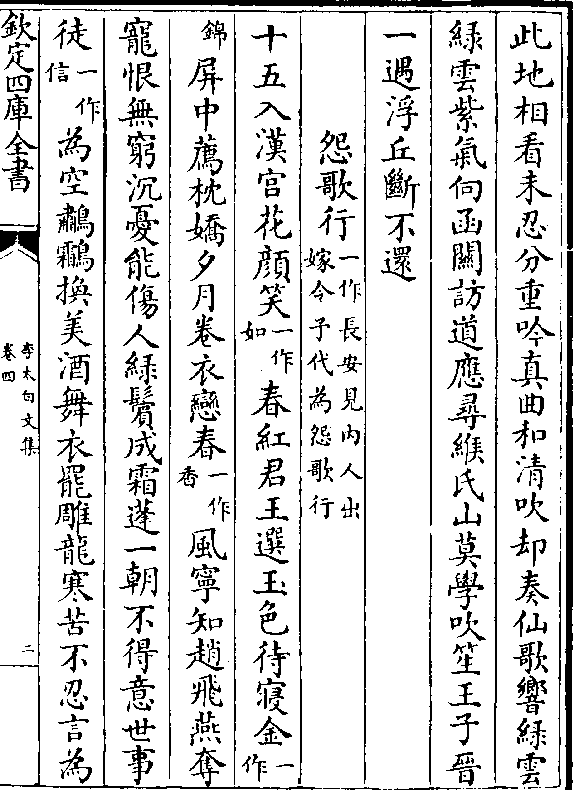 此地相看未忍分重吟真曲和清吹却奏仙歌響綠雲
綠雲紫氣向函關訪道應尋緱氏山莫學吹笙王子晉
一遇浮丘斷不還
怨歌行一作長安見內人出嫁令予代為怨歌行
十五入漢宮花顏笑一作如春紅君王選玉色待寢金一作
錦屏中薦枕嬌夕月卷衣戀春一作香風寧知趙飛燕奪
寵恨無窮沉憂能傷人綠鬢成霜蓬一朝不得意世事
徒一作信為空鷫鸘換美酒舞衣罷雕龍寒苦不忍言為
欽定四庫全書
李太白文集
卷四
二